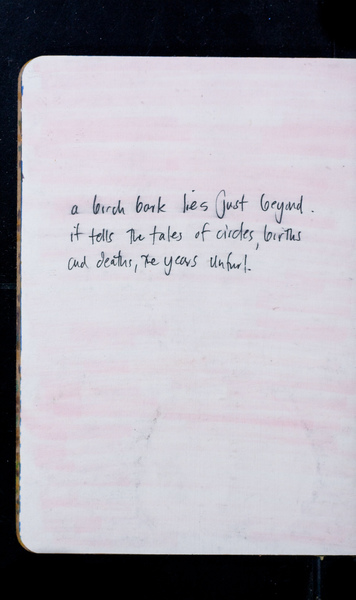 a birch bark lies just beyond.
it tells the tales of circles, births
and deaths, the years unfurl.